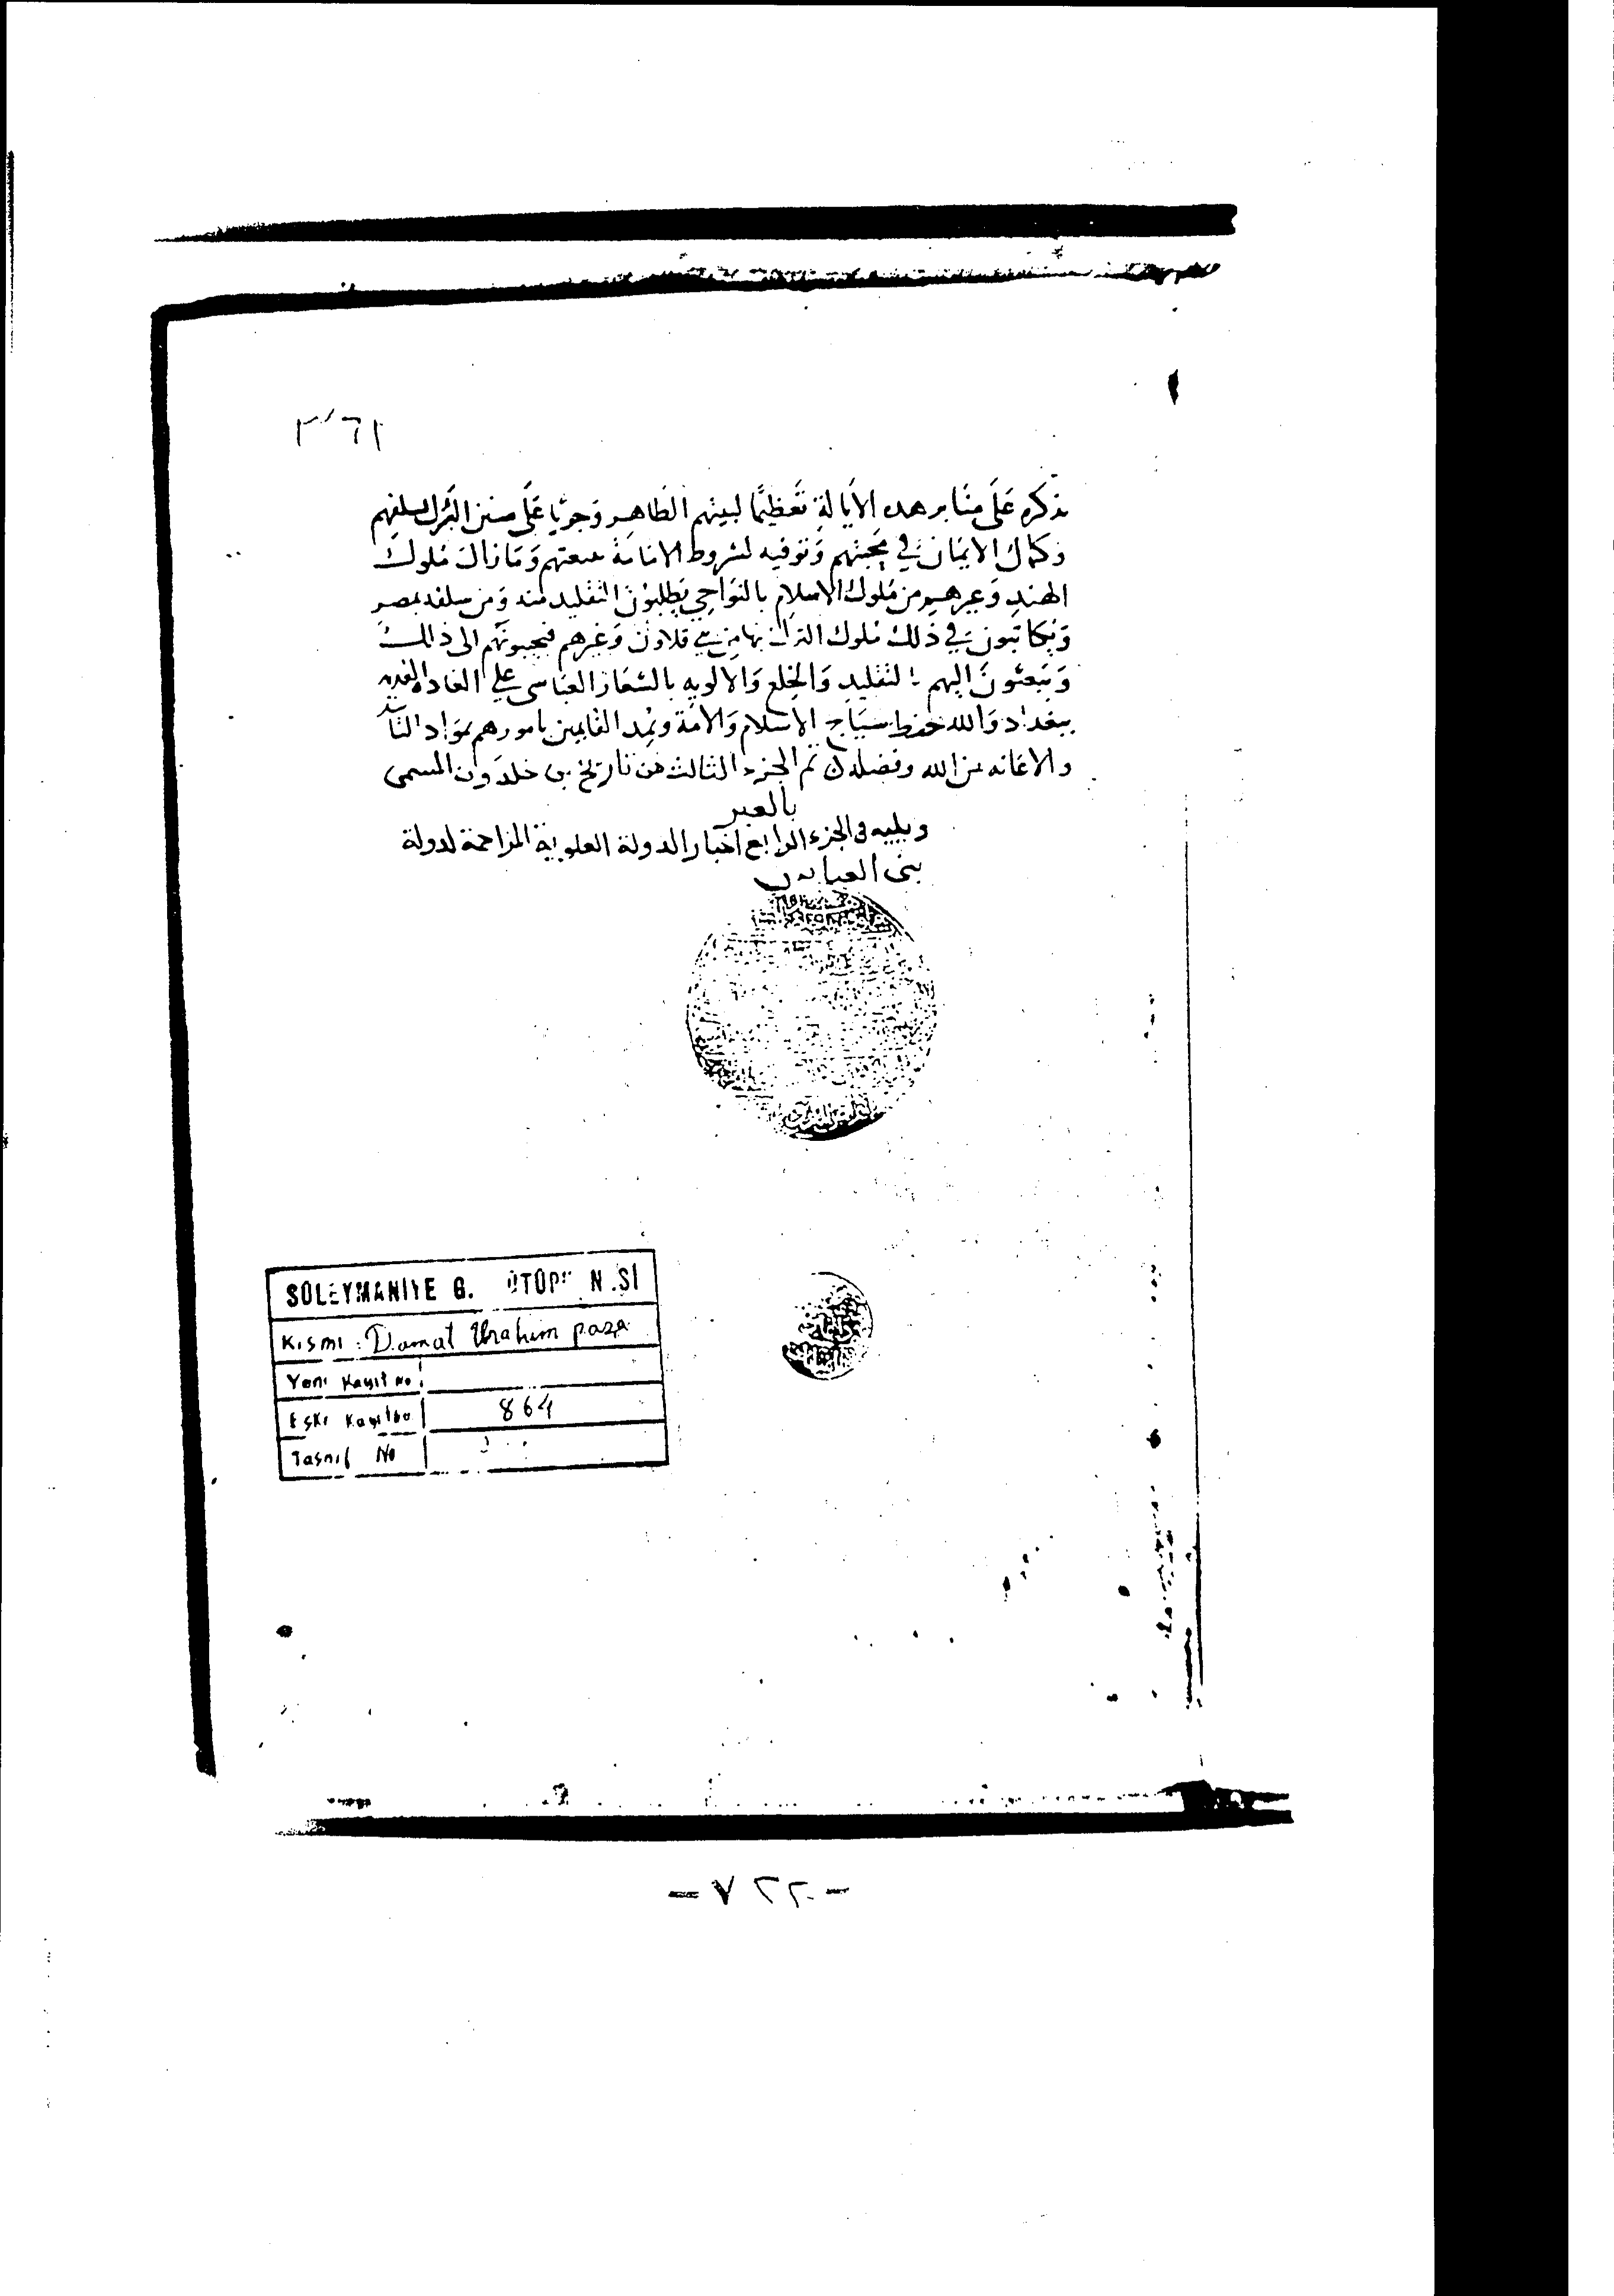 ٣٦١
بذكره على منابر هده الأيالة تعظيمًا لبيتهم الطاهر وجريا على سنن التبرك بسلفهم
وكمال الايمان في محبتهم وتوفيه لشروط الامامة ببيعتهم وما زال ملوك
الهند وغيرهم من ملوك الاسلام بالنواحي يطلبون التقليد منه ومن سلفه بمصر
ويكاتبون في ذلك ملوك الترك بها من بني قلاون وغيرهم فيجيبونهم الى ذالك
ويبعثون اليهم بالتقليد والخلع والالويه بالشعار العباسي على العاده القديمه
ببغداد والله حفظ سياج الاسلام والامة ويمد القايمين بامورهم بمواد التأييد
والاعانه من الله وفضله تم الجزء الثالث من تاريخ بن خلدون المسمى
بالعبر
ويليه فى الجزء الرابع اخبار الدولة العلوية المزاحمة لدولة
بنى العباس
SÜLEYMANİYE G. KÜTÜPHANESİ
Kısmı : Damat İbrahim paşa
Yeni Kayıt No
Eski Kayıt No 864
Tasnif No
- ٧٢٢ -